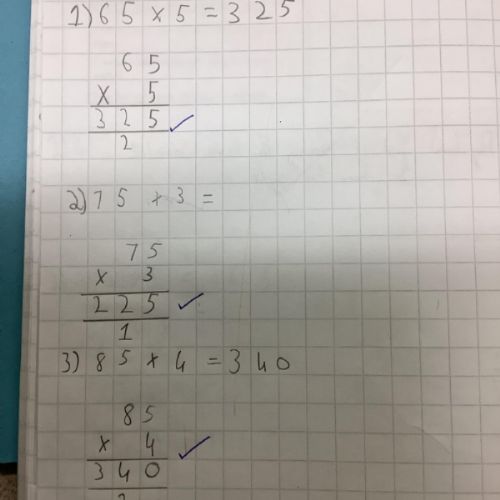 1) 65 × 5 = 325
65
× 5
325
2
2) 75 × 3 =
75
× 3
225
1
3) 85 × 4 = 340
85
× 4
340
2